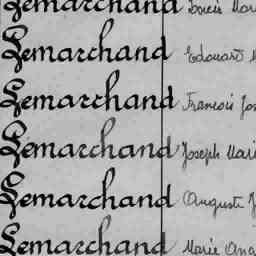 Lemarchand Louis Mar
Lemarchand Edouard
Lemarchand Francois Jos
Lemarchand Joseph Mari
Lemarchand Auguste J
Lemarchand Marie Ang